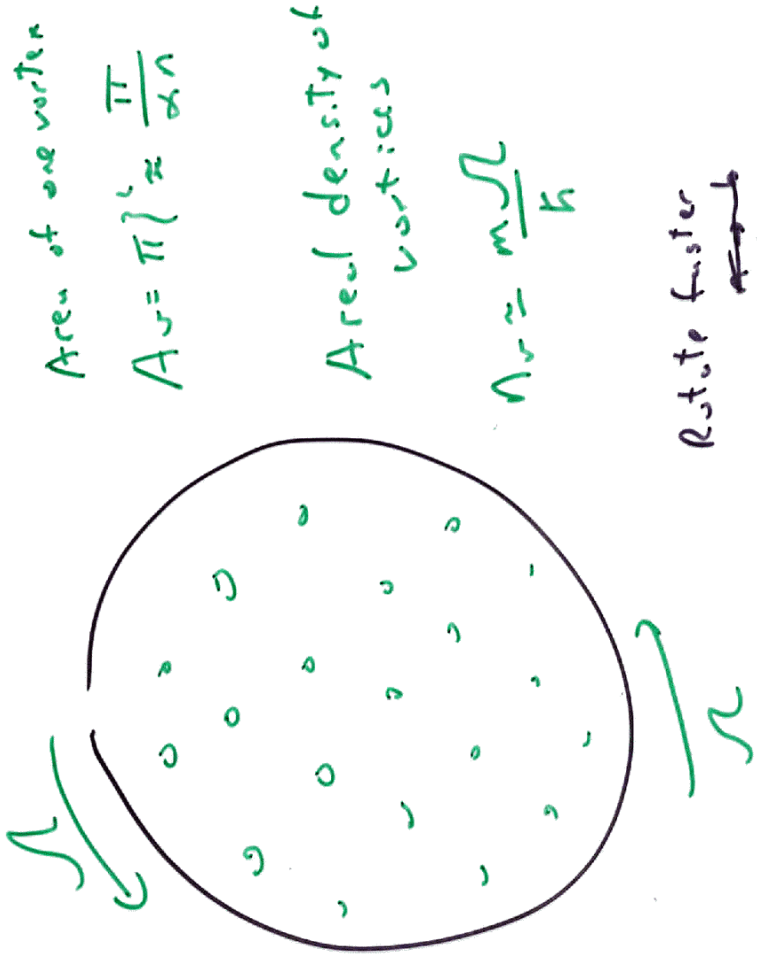 Area of one vortex
A_v = πξ² ≈ π/γn
Areal density of
vortices
n_v ≃ mΩ/ħ
Rotate faster
Ω
Ω